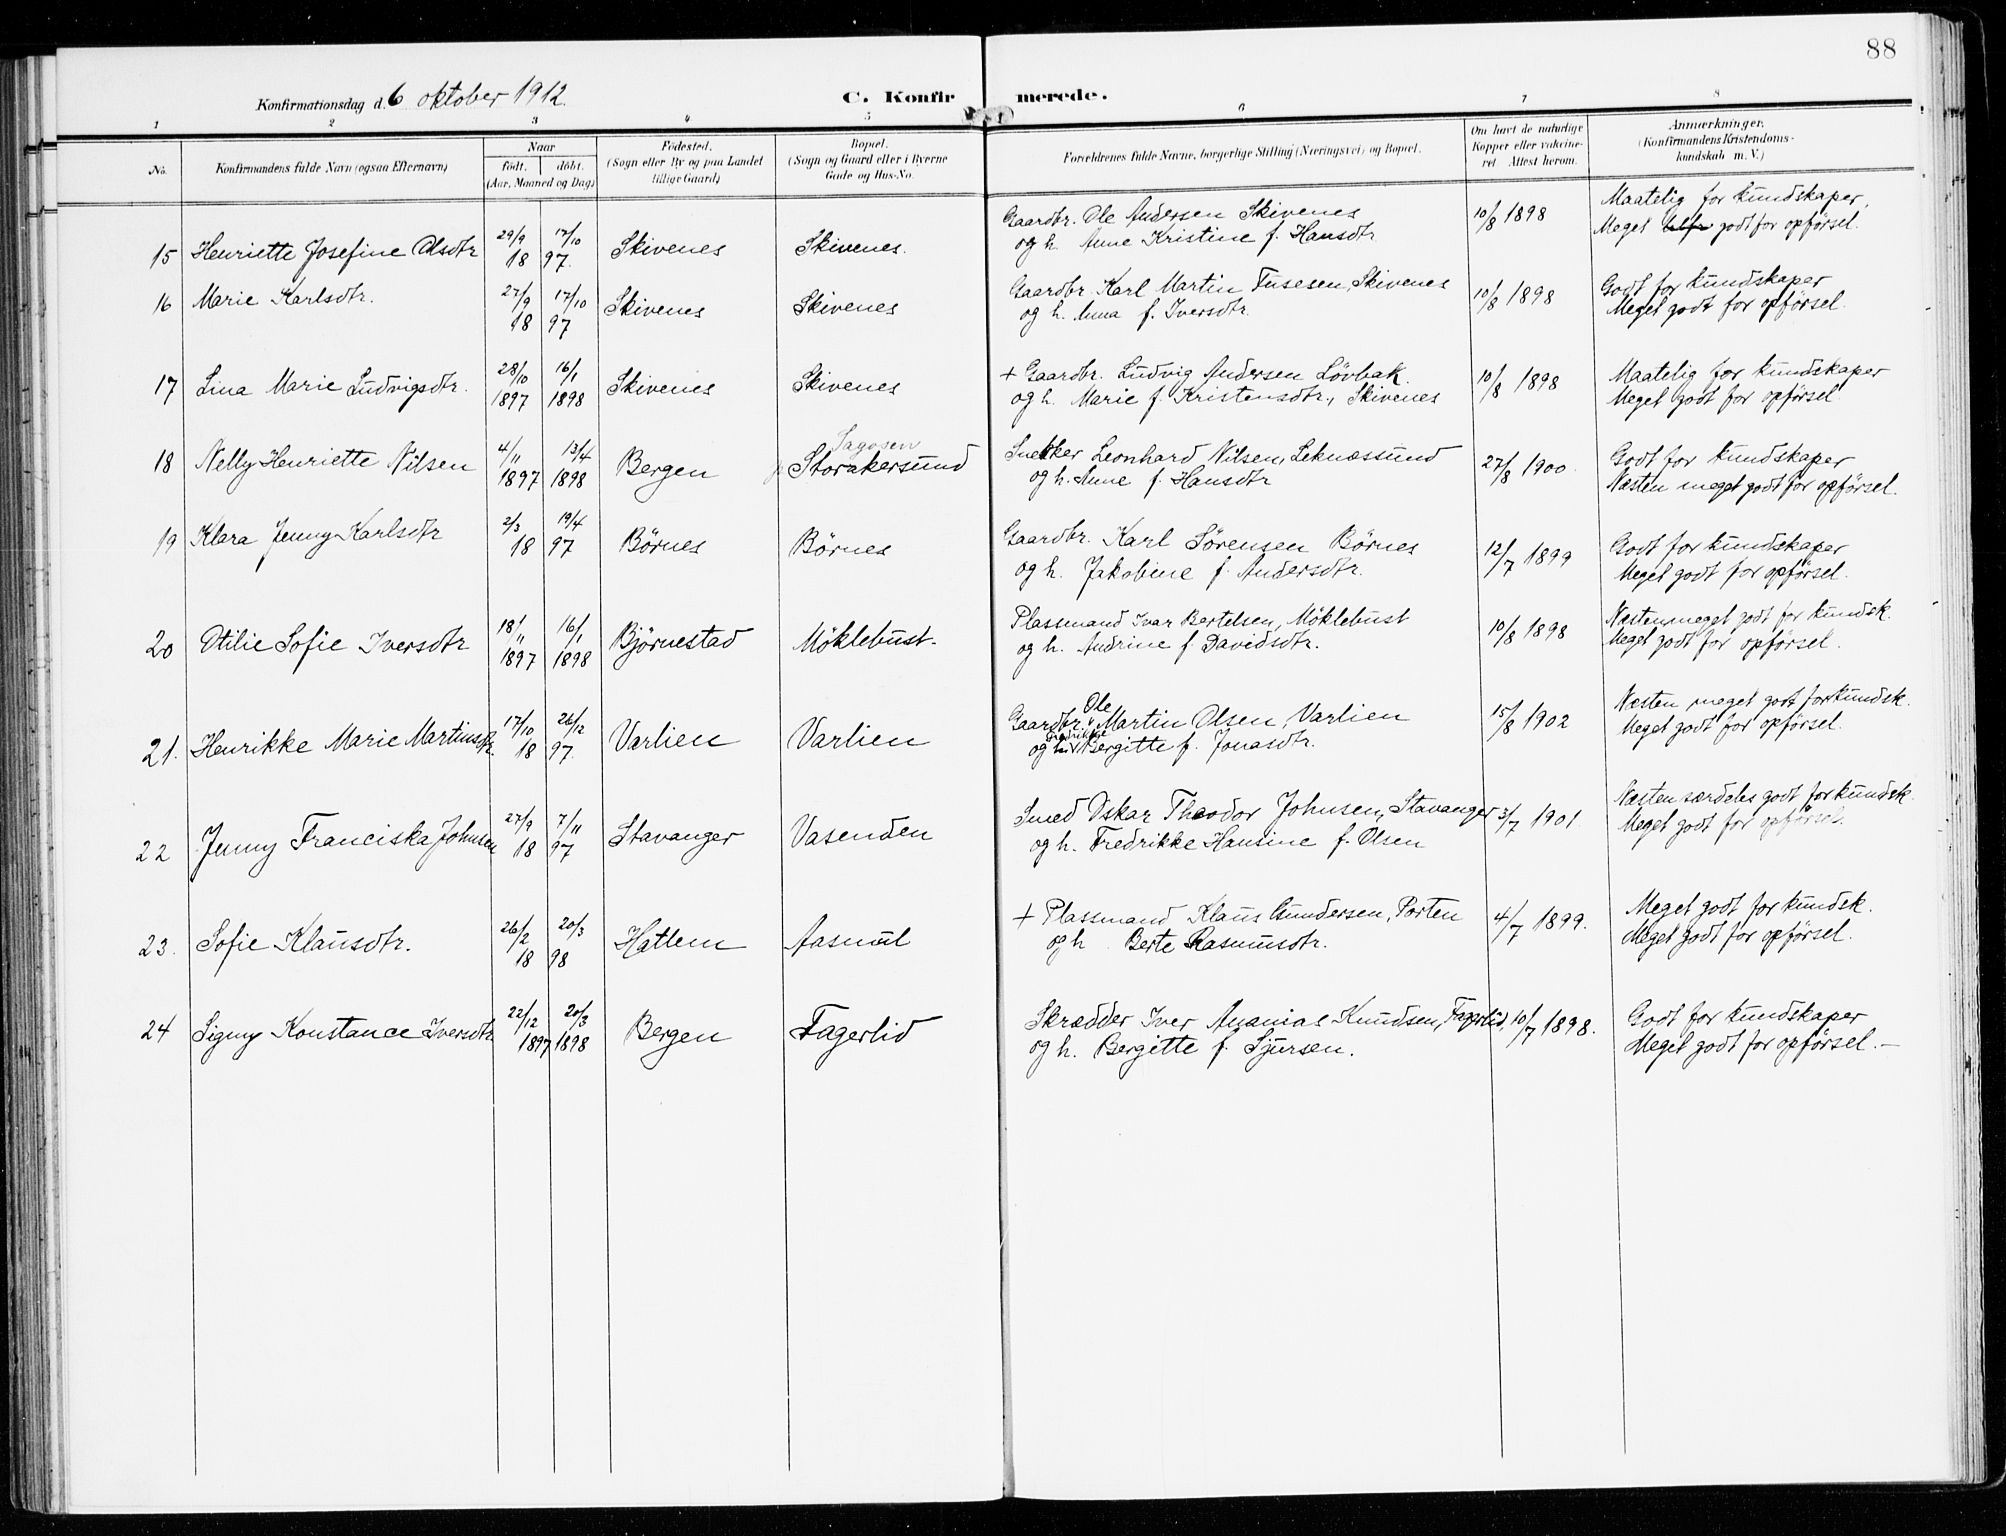 88
Konfirmationsdag d. 6 oktober 1912.
C. Konfirmerede.
1 2 3 4 5 6 7 8
No.
Konfirmandens fulde Navn (ogsaa Efternavn)
Naar
födt. döbt.
(Aar, Maaned og Dag)
Födested.
(Sogn eller By og paa Landet
tillige Gaard)
Bopæl.
(Sogn og Gaard eller i Byerne
Gade og Hus-No.
Forældrenes fulde Navne, borgerlige Stilling (Næringsvei) og Bopæl.
Om havt de naturlige
Kopper eller vakcine-
ret Attest herom.
Anmærkninger.
(Konfirmandens Kristendoms-
kundskab m. V.)
15 Henriette Josefine Olsdtr 29/9 17/10 18 97. Skivenes Skivenes.
Gaardbr. Ole Andersen Skivenes
og h. Anne Kristine f. Hansdtr
10/8 1898
Maatelig for kundskaper,
Meget godt for opførsel.
16 Marie Karlsdtr. 27/9 17/10 18 97 Skivenes Skivenes
Gaardbr. Karl Martin Tusesen, Skivenes
og h. Anna f. Iversdtr.
10/8 1898
Godt for kundskaper
Meget godt for opførsel.
17 Lina Marie Ludvigsdtr. 28/10 1897 16/1 1898 Skivenes Skivenes
+ Gaardbr. Ludvig Andersen Lövbak.
og h. Marie f. Kristensdtr., Skivenes
10/8 1898
Maatelig for kundskaper
Meget godt for opførsel
18 Nelly Henriette Nilsen 4/11 1897 13/4 1898 Bergen Storakersund
Snekker Leonhard Nilsen, Leknæssund
og h. Anne f. Hansdtr
27/8 1900.
Godt for kundskaper
Næsten meget godt for opførsel.
19 Klara Jenny Karlsdtr 2/3 19/4 18 97 Börnes Börnes
Gaardbr. Karl Sörensen Börnes
og h. Jakobine f. Andersdtr.
12/7 1899
Godt for kundskaper
Meget godt for opførsel.
20 Otilie Sofie Iversdtr 18/11 1897 16/1 1898 Björnestad Möklebust.
Plassmand Ivar Bertelsen, Möklebust
og h. Andrine f. Davidsdtr.
10/8 1898
Næsten meget godt for kundsk.
Meget godt for opførsel.
21. Henrikke Marie Martinsdtr. 17/10 26/12 18 97. Varlien Varlien
Gaardbr. Ole Martin Olsen Varlien
og h. Fredrikke Bergitte f. Jonasdtr.
15/8 1902
Næsten meget godt for kundsk.
Meget godt for opførsel.
22 Jenny Franciska Johnsen 27/9 7/11 18 97 Stavanger Vasenden
Smed Oskar Theodor Johnsen, Stavanger
og h. Fredrikke Hansine f. Olsen
3/7 1901
Næsten særdeles godt for kundsk.
Meget godt for opførsel.
23. Sofie Klausdtr. 26/2 20/3 18 98 Hatlem Aasmul
+ Plassmand Klaus Gundersen, Porten
og h. Berte Rasmusdtr.
4/7 1899.
Meget godt for kundsk.
Meget godt for opførsel.
24 Signy Konstance Iversdtr 22/12 1897 20/3 1898 Bergen Fagerlid
Skrædder Iver Ananias Knudsen, Fagerlid,
og h. Bergitte f. Sjursen.
10/7 1898.
Godt for kundskaper
Meget godt for opførsel. –